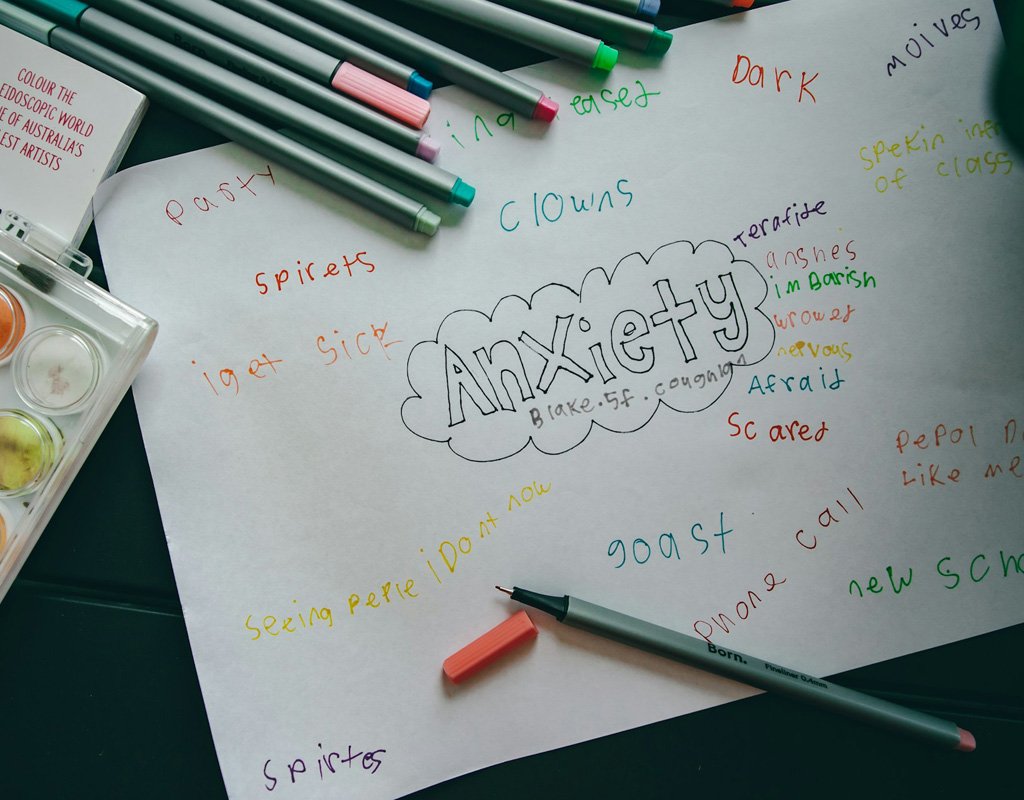 COLOUR THE
EIDOSCOPIC WORLD
E OF AUSTRALIA'S
LEST ARTISTS
moives
Dark
eased
ing
spekin
of class
party
clowns
Terafite
spirets
anshes
imBarish
wrowes
nervous
Afraid
Scared
iget sick
Anxiety
Blake.5f.coughlan
pepol
Like me
seeing peple iDont now
goast
call
phone
new Scho
Born.
Fineliner 0.4mm
spirtes